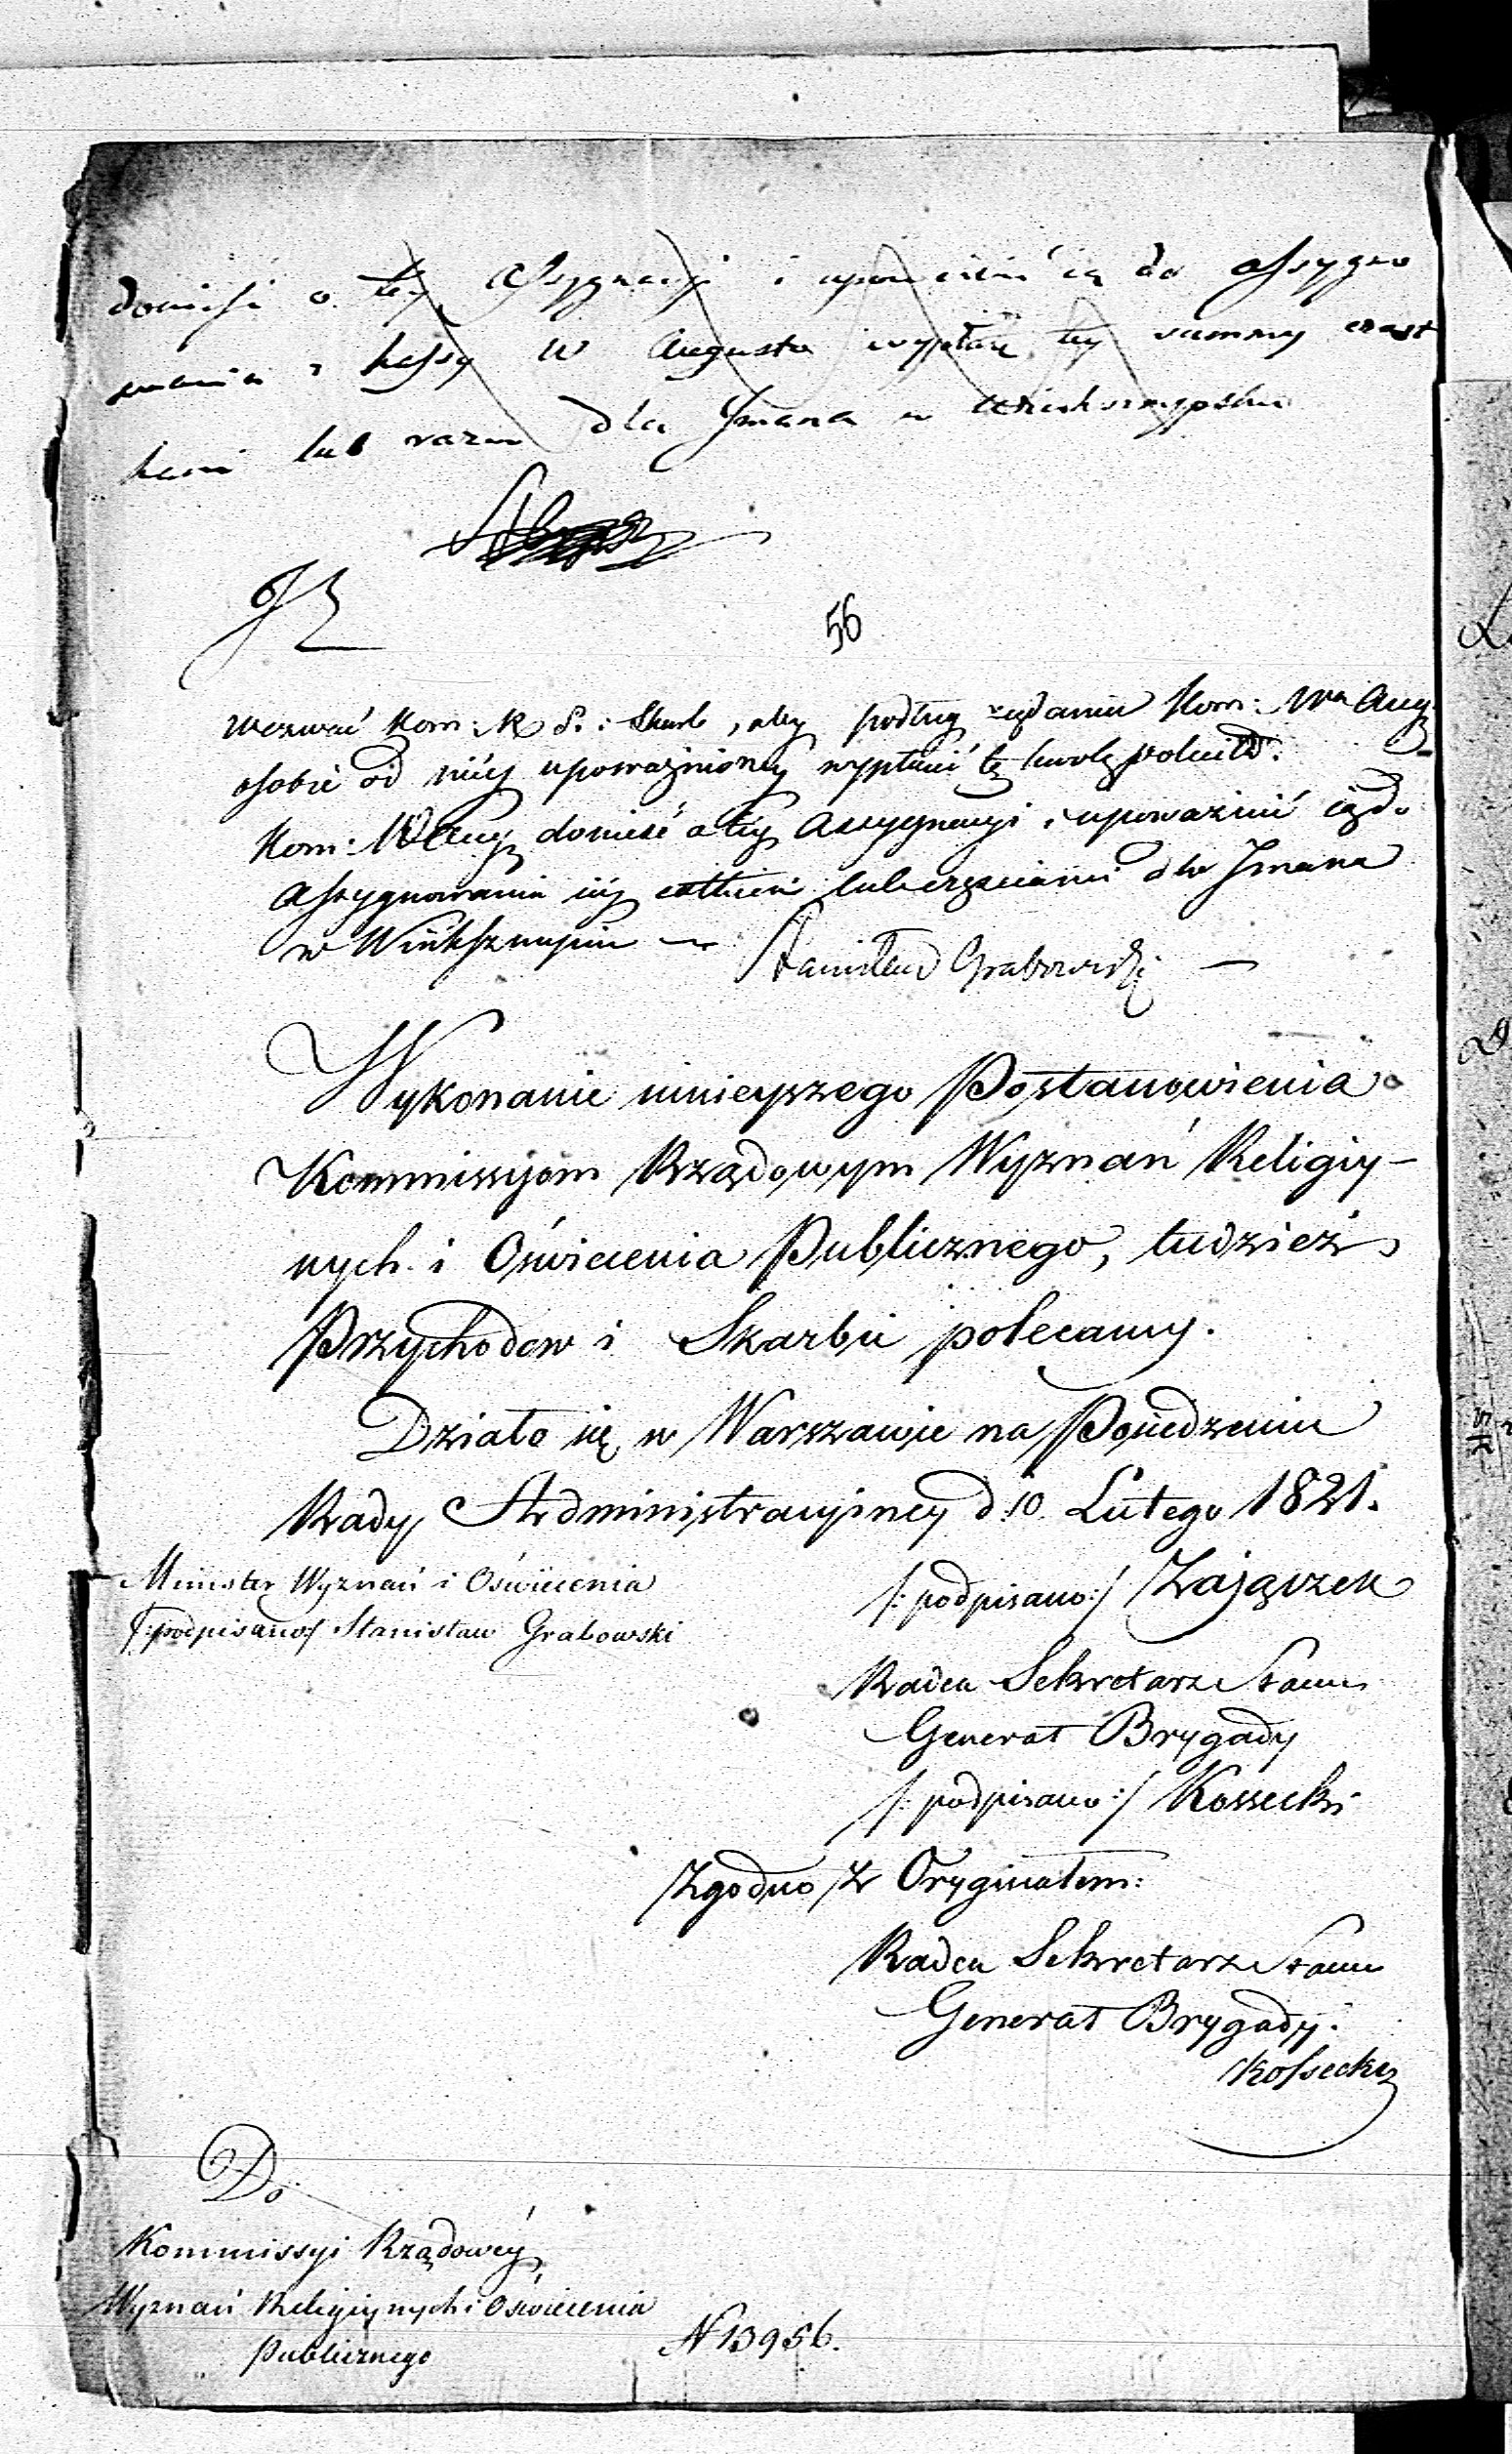 donieść o tey Assygnacyi i upoważnić ią do assygno
wania z kassy W Augusto wypłaty tey summy cząst
kami lub razem dla Imana w Winkszupiu
56
Wezwać Kom: R. P. i Skarb, aby podług żądania Kom: Wa Aug.
osobie od niéy upoważnioney wypłacić tę kwotę polecił.
Kom: W Aug. donieść o tey Assygnacyi i upoważnić ią do
assygnowania iéy całkiem lub częściami dla Imana
w Winksznupiu
Stanisław Grabowski
Wykonanie ninieyszego Postanowienia
Kommissyom Rządowym Wyznań Religiy-
nych i Oświecenia Publicznego, tudzież
Przychodow i Skarbu polecamy.
Działo się w Warszawie na Posiedzeniu
Rady Administracyiney d. 10. Lutego 1821.
Minister Wyznań i Oświecenia
/:podpisano/ Stanisław Grabowski
/: podpisano:/ Zajączek
Radca Sekretarz Stanu
Generał Brygady
/: podpisano:/ Kossecki
Zgodno z Oryginałem:
Radca Sekretarz Stanu
Generał Brygady.
Kossecki
Do
Kommissyi Rządowéy
Wyznań Religiynych i Oświecenia
Publicznego
N 13956.